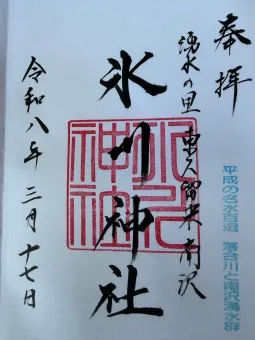 奉拝
湧水の里 東久留米南沢
平成の名水百選 落合川と南沢湧水群
氷川神社
氷川神社
令和八年三月十七日